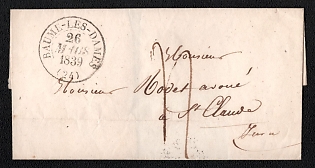 BAUME-LES-DAMES
26
MARS
1839
(24)
Monsieur
Monsieur Hodet avoué
à St Claude
Jura